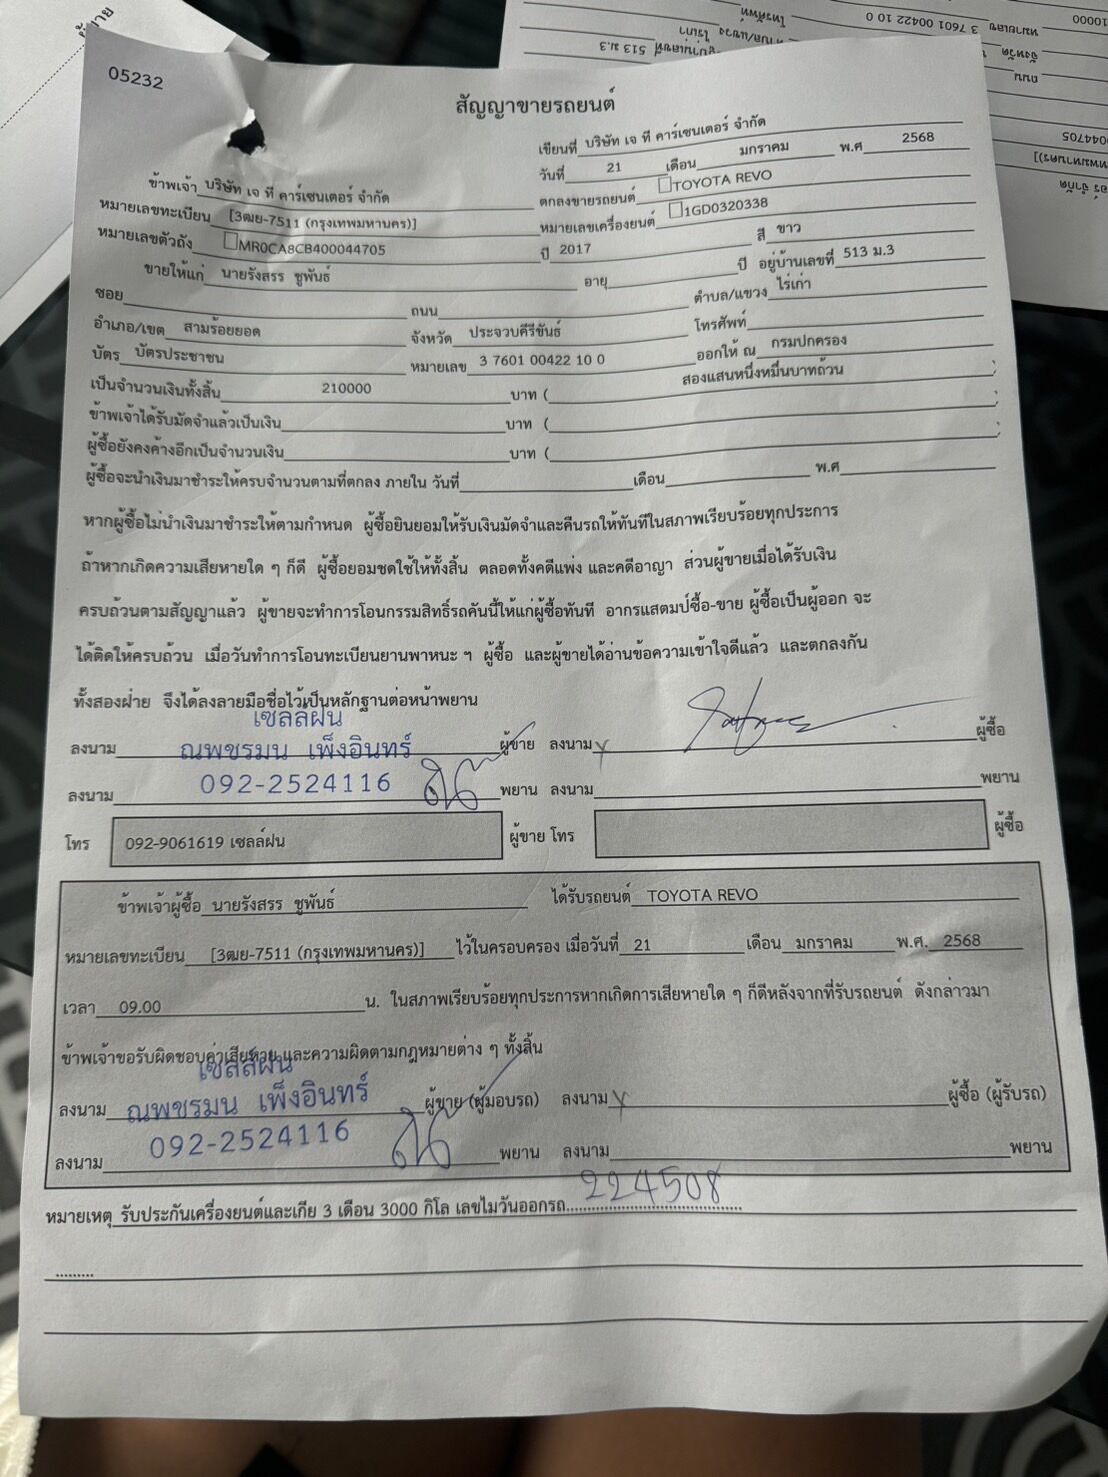 05232
สัญญาขายรถยนต์
เขียนที่ บริษัท เจ ที คาร์เซนเตอร์ จำกัด
วันที่ 21 เดือน มกราคม พ.ศ 2568
ข้าพเจ้า บริษัท เจ ที คาร์เซนเตอร์ จำกัด ตกลงขายรถยนต์ TOYOTA REVO
หมายเลขทะเบียน [3ฒย-7511 (กรุงเทพมหานคร)] หมายเลขเครื่องยนต์ 1GD0320338
หมายเลขตัวถัง MR0CA8CB400044705 ปี 2017 สี ขาว
ขายให้แก่ นายรังสรร ชูพันธ์ อายุ ปี อยู่บ้านเลขที่ 513 ม.3
ซอย ถนน ตำบล/แขวง ไร่เก่า
อำเภอ/เขต สามร้อยยอด จังหวัด ประจวบคีรีขันธ์ โทรศัพท์
บัตร บัตรประชาชน หมายเลข 3 7601 00422 10 0 ออกให้ ณ กรมปกครอง
เป็นจำนวนเงินทั้งสิ้น 210000 บาท ( สองแสนหนึ่งหมื่นบาทถ้วน )
ข้าพเจ้าได้รับมัดจำแล้วเป็นเงิน บาท ( )
ผู้ซื้อยังคงค้างอีกเป็นจำนวนเงิน บาท ( )
ผู้ซื้อจะนำเงินมาชำระให้ครบจำนวนตามที่ตกลง ภายใน วันที่ เดือน พ.ศ
หากผู้ซื้อไม่นำเงินมาชำระให้ตามกำหนด ผู้ซื้อยินยอมให้รับเงินมัดจำและคืนรถให้ทันทีในสภาพเรียบร้อยทุกประการ
ถ้าหากเกิดความเสียหายใด ๆ ก็ดี ผู้ซื้อยอมชดใช้ให้ทั้งสิ้น ตลอดทั้งคดีแพ่ง และคดีอาญา ส่วนผู้ขายเมื่อได้รับเงิน
ครบถ้วนตามสัญญาแล้ว ผู้ขายจะทำการโอนกรรมสิทธิ์รถคันนี้ให้แก่ผู้ซื้อทันที อากรแสตมป์ซื้อ-ขาย ผู้ซื้อเป็นผู้ออก จะ
ได้ติดให้ครบถ้วน เมื่อวันทำการโอนทะเบียนยานพาหนะ ฯ ผู้ซื้อ และผู้ขายได้อ่านข้อความเข้าใจดีแล้ว และตกลงกัน
ทั้งสองฝ่าย จึงได้ลงลายมือชื่อไว้เป็นหลักฐานต่อหน้าพยาน
เซลล์ฝน
ลงนาม ณพชรมน เพ็งอินทร์ ผู้ขาย ลงนาม ผู้ซื้อ
092-2524116
ลงนาม พยาน ลงนาม พยาน
โทร 092-9061619 เซลล์ฝน ผู้ขาย โทร ผู้ซื้อ
ข้าพเจ้าผู้ซื้อ นายรังสรร ชูพันธ์ ได้รับรถยนต์ TOYOTA REVO
หมายเลขทะเบียน [3ฒย-7511 (กรุงเทพมหานคร)] ไว้ในครอบครอง เมื่อวันที่ 21 เดือน มกราคม พ.ศ. 2568
เวลา 09.00 น. ในสภาพเรียบร้อยทุกประการหากเกิดการเสียหายใด ๆ ก็ดีหลังจากที่รับรถยนต์ ดังกล่าวมา
ข้าพเจ้าขอรับผิดชอบค่าเสียหาย และความผิดตามกฎหมายต่าง ๆ ทั้งสิ้น
เซลล์ฝน
ลงนาม ณพชรมน เพ็งอินทร์ ผู้ขาย (ผู้มอบรถ) ลงนาม ผู้ซื้อ (ผู้รับรถ)
092-2524116
ลงนาม พยาน ลงนาม พยาน
หมายเหตุ รับประกันเครื่องยนต์และเกีย 3 เดือน 3000 กิโล เลขไมวันออกรถ 224508